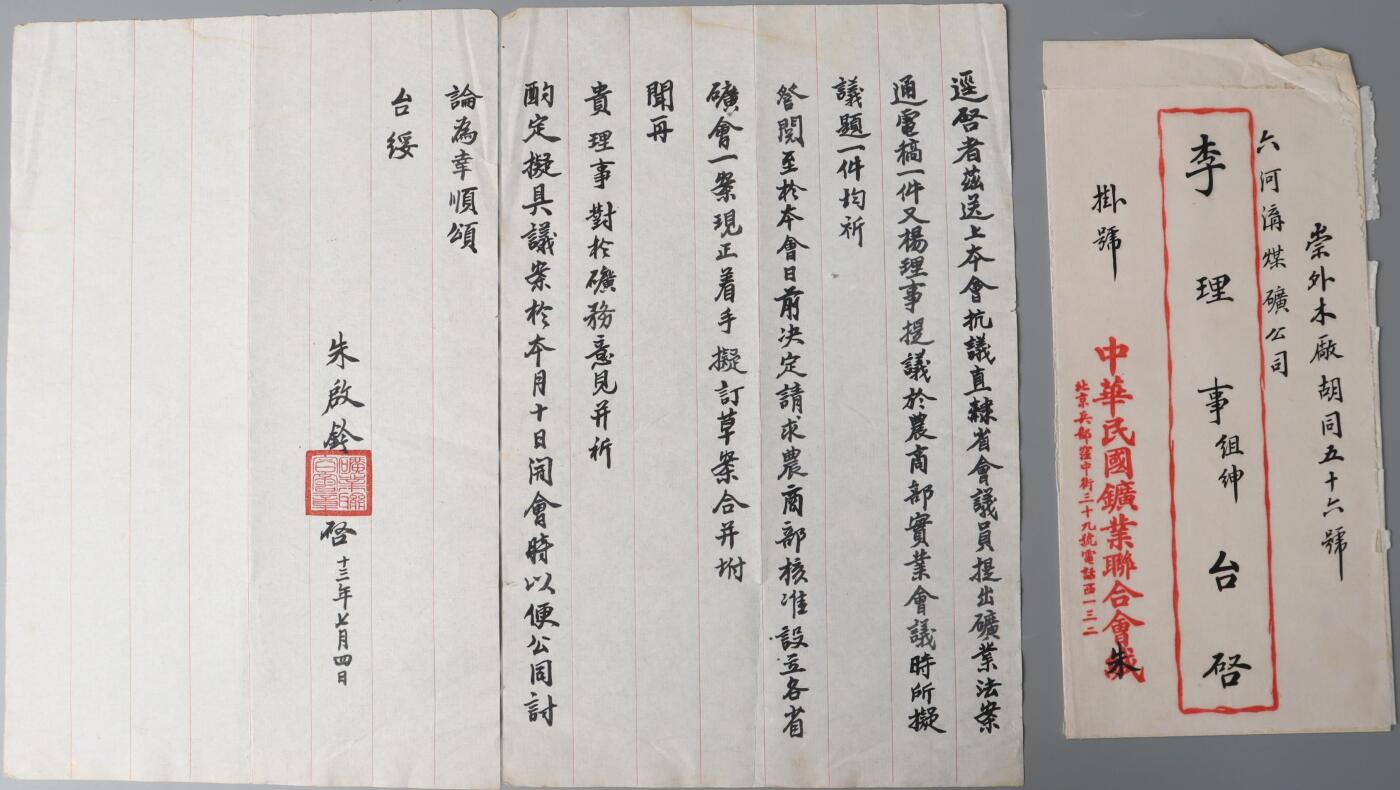 逕啓者茲送上本會抗議直隸省會議員提出礦業法案
通電稿一件又楊理事提議於農商部實業會議時所擬
議題一件均祈
詧閱至於本會日前決定請求農商部核准設立各省
礦會一案現正着手擬訂草案合并坿
聞再
貴理事對於礦務意見并祈
酌定擬具議案於本月十日開會時以便公同討
論為幸順頌
台綏
朱啟鈐
啓
十三年七月四日
崇外木廠胡同五十六號
六河溝煤礦公司
李理事組紳台啓
掛號
中華民國鑛業聯合會緘
北京兵部窪中街三十九號電話西一三二
朱